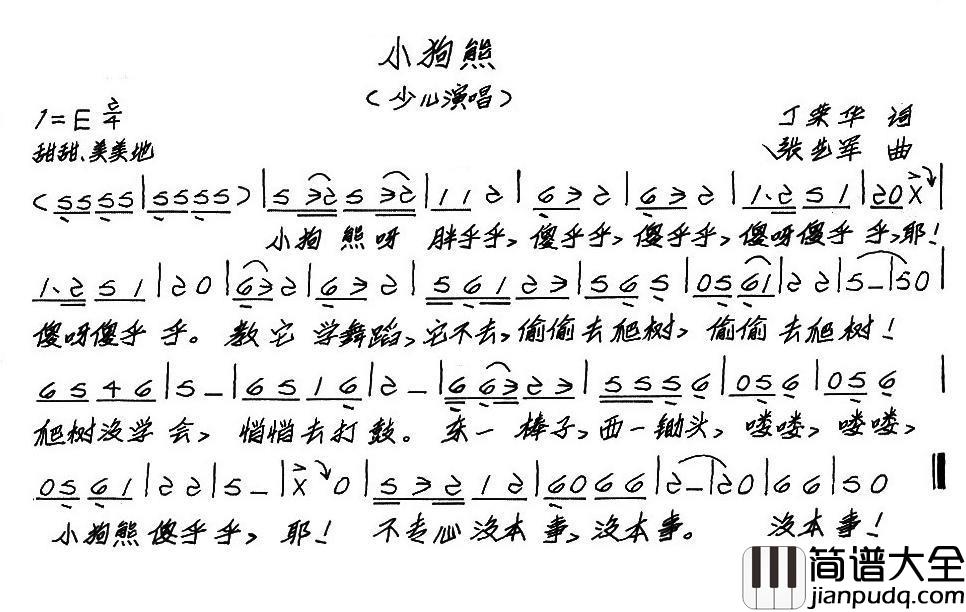 小狗熊
（少儿演唱）
1=E 2/4
丁荣华 词
甜甜、美美地
张艺军 曲
(5555|5555)|5 325 32|112|632|632|1.251|20X|
小狗熊呀 胖乎乎，傻乎乎，傻乎乎，傻呀傻乎乎，耶！
1.251|20|632|632|56123|565|0561|22|5-|50|
傻呀傻乎乎。教它学舞蹈，它不去，偷偷去爬树，偷偷去爬树！
6546|5-|6516|2-|66323|5556|056|056|
爬树没学会，悄悄去打鼓。东一棒子，西一锄头，喽喽，喽喽，
0561|22|5-|X0|53212|6066|2-|20|66|50
小狗熊傻乎乎，耶！不专心没本事，没本事。没本事！
简谱大全
jianpudq.com